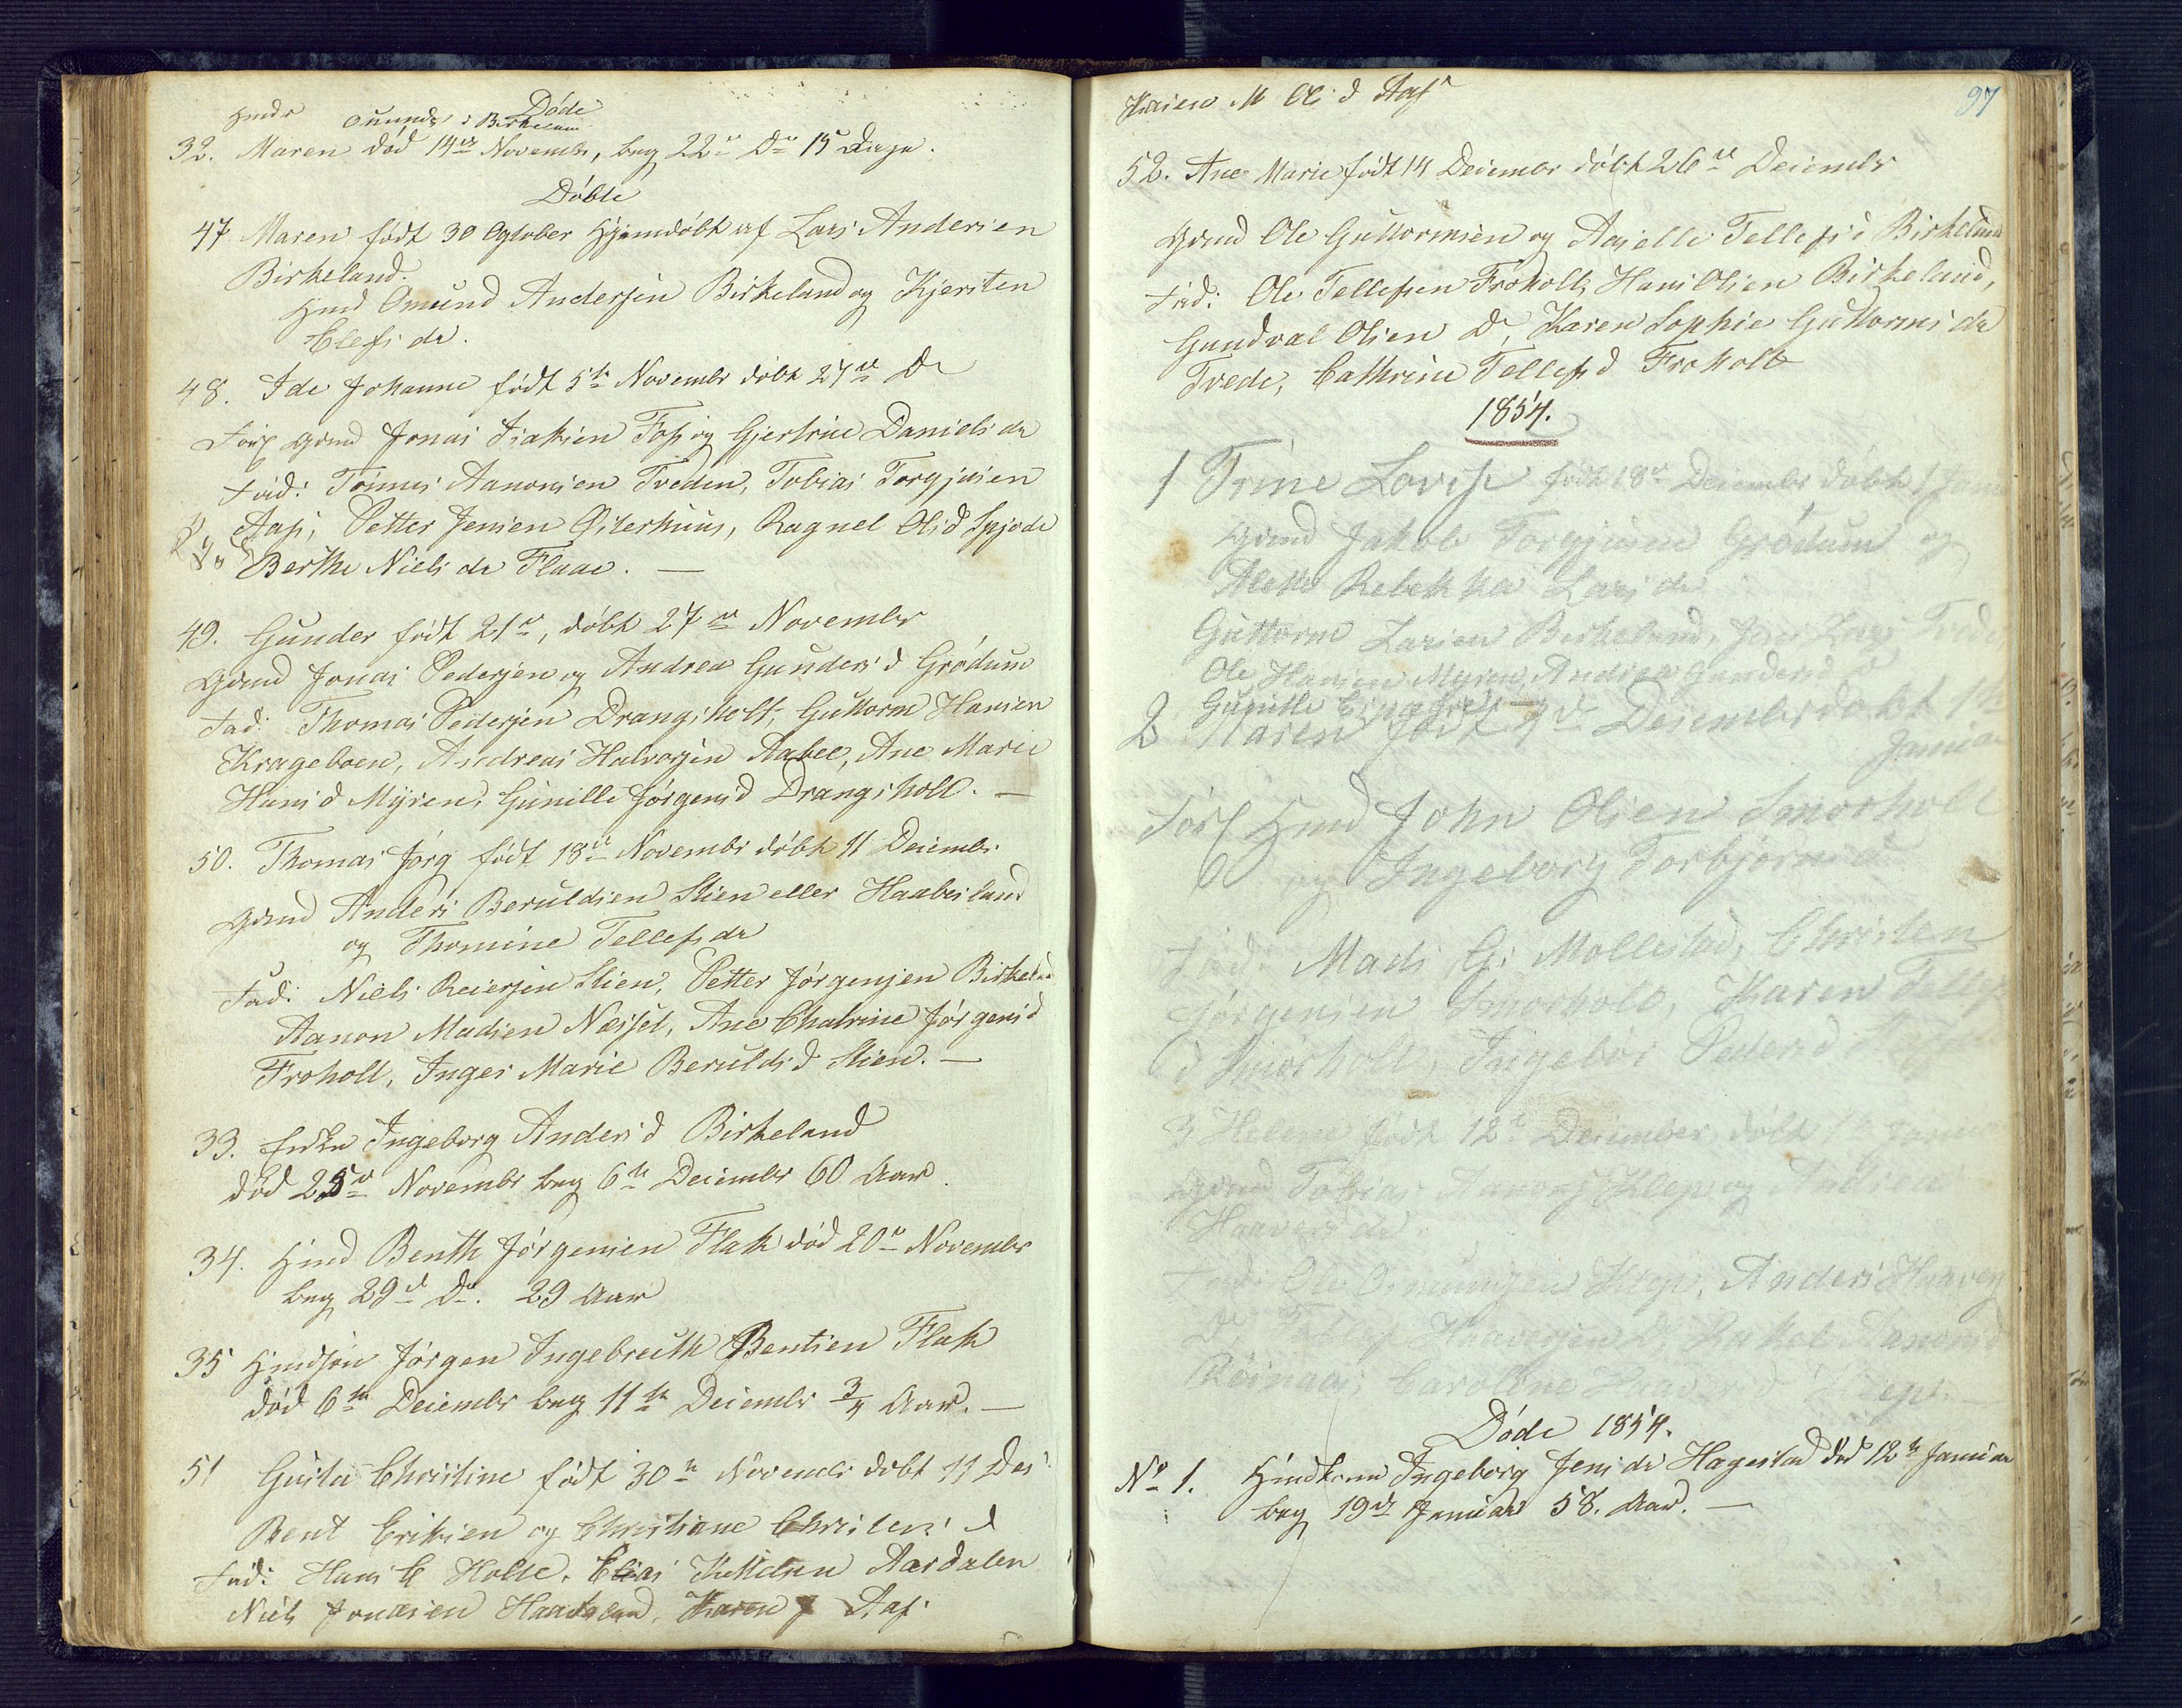 Døde
Hmds Omunds : Birkeland
32. Maren død 14de Novembr, beg 22de Do 15 Dage.
Døbte
47 Maren født 30 Ogtober Hjemdøbt af Lars Andersen
Birkeland.
Hmd Omund Andersen Birkeland og Kjersten
Clefs dr.
48. Ide Johanne født 5te Novembr døbt 27de Do
Gmd Jonas Isaksen Foss og Gjertrue Daniels dr
Fad: Tønnes Aanonsen Treden, Tobias Torgjusen
Aas, Petter Jensen Østerhuus, Ragnel Olsd
Berthe Niels dr Flaae. —
49. Gunder født 21de, døbt 27de November
Gmd Jonas Pedersen og Andrea Gundersd Grødum
Fad: Thomas Pedersen Drangsholt, Guttorm Hansen
Krageboen, Andreas Halvorsen Aabel, Ane Marie
Hansd Myren, Gunille Jørgensd Drangsholt. —
50. Thomas Jørg født 18de Novembr døbt 11 Decembr
Gmd Anders Beruldsen Stien eller Haabesland
og Thomine Tellefsdr
Fad: Niels Reiersen Stien, Petter Jørgensen Birkeland
Aanon Madsen Næsset, Ane Chatrine Jørgensd
Froholt, Inger Marie Beruldsd Stien. —
33. Enke Ingeborg Andersd Birkeland
død 25de Novembr beg 6te Decembr 60 Aar.
34. Hmd Benth Jørgensen Flak død 20de Novembr
beg 29de Do. 29 Aar
35 Hmdsøn Jørgen Ingebreth Bentsen Flak
død 6te Decembr beg 11te Decembr 3/4 Aar. —
51 Gusta Christine født 30te Novembr døbt 11 Des
Bent Eriksen og Christiane Christensd
Fad: Hans C Holte, Elias Kittelsen Aasdalen
Niels Jonassen Haabesland, Karen Aas
97
Karen M Olsd Aas
52. Ane Marie født 14 Decembr døbt 26de Decembr
Gmd Ole Guttormsen og Aaselle Tellefsd Birkeland
Fad: Ole Tellefsen Froholt, Hans Olsen Birkeland,
Gundval Olsen Do, Karen Sophie Guttorms dr
Trede, Cathrine Tellefsd Froholt
1854.
1 Trine Lovise født 18de Decembr døbt 1 Janu
Gmd Jakob Torgjusen Grødum og
Rebekka Lars dr
Guttorm Larsen Birkeland,
Ole Hansen Myren, Andrea Gundersd
Gunille
2 Maren født 7de Decembr døbt 1te
Januar
Hmd John Olsen Smorholt
og Ingeborg Torbjørnsd
Fad: Mads G. Mollestad, Christen
Jørgensen Smorholt, Karen Tellefs
d Smorholt, Ingebor Pedersd
3 Helene født 12te December døbt 1te Janua
Gmd Tobias Aanons Kleps og Andrea
Haavors dr
Fad: Ole Omunsen Kleps, Anders Haavors
Caroline Haavorsd
Døde 1854.
No 1. Hmdkone Ingeborg Jens dr Hagestad død 12te Januar
beg 19de Januar 58. Aar. —